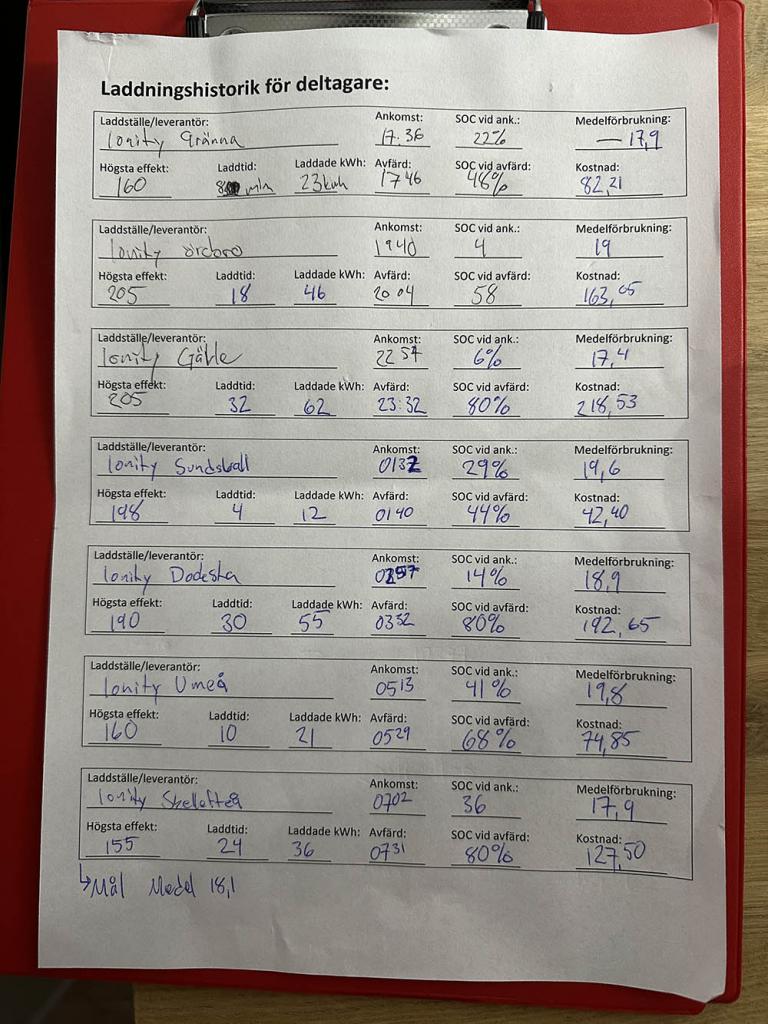 Laddningshistorik för deltagare:
Laddställe/leverantör: Ankomst: SOC vid ank.: Medelförbrukning:
Ionity Gränna 17.36 22% — 17,9
Högsta effekt: Laddtid: Laddade kWh: Avfärd: SOC vid avfärd: Kostnad:
160 min 23kwh 1746 46% 82,21
Laddställe/leverantör: Ankomst: SOC vid ank.: Medelförbrukning:
Ionity örebro 1940 4 19
Högsta effekt: Laddtid: Laddade kWh: Avfärd: SOC vid avfärd: Kostnad:
205 18 46 2004 58 163,05
Laddställe/leverantör: Ankomst: SOC vid ank.: Medelförbrukning:
Ionity Gävle 2257 6% 17,4
Högsta effekt: Laddtid: Laddade kWh: Avfärd: SOC vid avfärd: Kostnad:
205 32 62 23:32 80% 218,53
Laddställe/leverantör: Ankomst: SOC vid ank.: Medelförbrukning:
Ionity Sundsvall 0132 29% 19,6
Högsta effekt: Laddtid: Laddade kWh: Avfärd: SOC vid avfärd: Kostnad:
198 4 12 0140 44% 42,40
Laddställe/leverantör: Ankomst: SOC vid ank.: Medelförbrukning:
Ionity Docksta 14% 18,9
Högsta effekt: Laddtid: Laddade kWh: Avfärd: SOC vid avfärd: Kostnad:
190 30 55 0332 80% 192,65
Laddställe/leverantör: Ankomst: SOC vid ank.: Medelförbrukning:
Ionity Umeå 0513 41% 19,8
Högsta effekt: Laddtid: Laddade kWh: Avfärd: SOC vid avfärd: Kostnad:
160 10 21 0529 68% 74,85
Laddställe/leverantör: Ankomst: SOC vid ank.: Medelförbrukning:
Ionity Skellefteå 0702 36 17,9
Högsta effekt: Laddtid: Laddade kWh: Avfärd: SOC vid avfärd: Kostnad:
155 24 36 0731 80% 127,50
↳Mål Medel 18,1